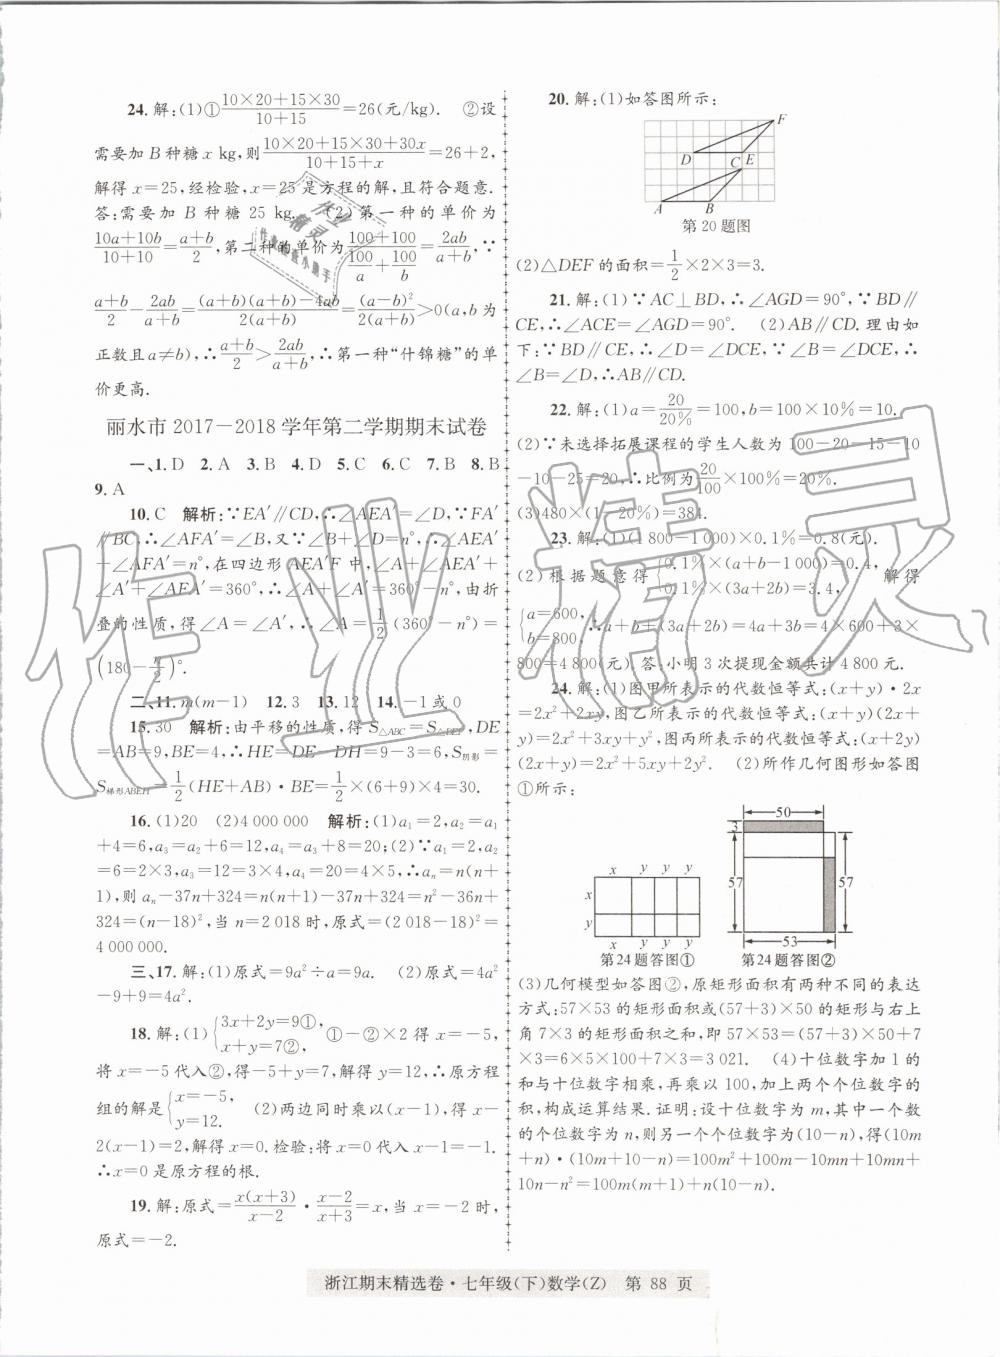 24. 解:(1)①(10×20+15×30)/(10+15)=26(元/kg). ②设
需要加 B 种糖 x kg,则(10×20+15×30+30x)/(10+15+x)=26+2,
解得 x=25,经检验,x=25 是方程的解,且符合题意.
答:需要加 B 种糖 25 kg. (2)第一种的单价为
(10a+10b)/(10+10)=(a+b)/2,第二种的单价为(100+100)/(100/a+100/b)=2ab/(a+b),∵
(a+b)/2-2ab/(a+b)=((a+b)(a+b)-4ab)/(2(a+b))=(a-b)²/(2(a+b))>0(a,b 为
正数且a≠b),∴(a+b)/2>2ab/(a+b),∴第一种“什锦糖”的单
价更高.
丽水市 2017-2018 学年第二学期期末试卷
一、1. D 2. A 3. B 4. D 5. C 6. C 7. B 8. B
9. A
10. C 解析:∵EA′∥CD,∴∠AEA′=∠D,∵FA′
∥BC,∴∠AFA′=∠B,又∵∠B+∠D=n°,∴∠AEA′
+∠AFA′=n°,在四边形 AEA′F 中,∠A+∠AEA′+
∠A′+∠AFA′=360°,∴∠A+∠A′=360°-n°,由折
叠的性质,得∠A=∠A′,∴∠A′=1/2(360°-n°)=
(180-n/2)°.
二、11. m(m-1) 12. 3 13. 12 14. -1 或 0
15. 30 解析:由平移的性质,得 S△ABC=S△DEF,DE
=AB=9,BE=4,∴HE=DE-DH=9-3=6,S阴影=
S梯形ABEH=1/2(HE+AB)·BE=1/2×(6+9)×4=30.
16. (1)20 (2)4 000 000 解析:(1)a₁=2,a₂=a₁
+4=6,a₃=a₂+6=12,a₄=a₃+8=20;(2)∵a₁=2,a₂
=6=2×3,a₃=12=3×4,a₄=20=4×5,∴aₙ=n(n+
1),则 aₙ-37n+324=n(n+1)-37n+324=n²-36n+
324=(n-18)²,当 n=2 018 时,原式=(2 018-18)²=
4 000 000.
三、17. 解:(1)原式=9a²÷a=9a. (2)原式=4a²
-9+9=4a².
18. 解:(1){3x+2y=9①, x+y=7②, ①-②×2 得 x=-5,
将 x=-5 代入②,得-5+y=7,解得 y=12,∴原方程
组的解是{x=-5, y=12. (2)两边同时乘以(x-1),得 x-
2(x-1)=2,解得 x=0. 检验:将 x=0 代入 x-1=-1.
∴x=0 是原方程的根.
19. 解:原式=x(x+3)/(x-2)·(x-2)/(x+3)=x,当 x=-2 时,
原式=-2.
20. 解:(1)如答图所示:
F
D C E
A B
第 20 题图
(2)△DEF 的面积=1/2×2×3=3.
21. 解:(1)∵AC⊥BD,∴∠AGD=90°,∵BD∥
CE,∴∠ACE=∠AGD=90°. (2)AB∥CD. 理由如
下:∵BD∥CE,∴∠D=∠DCE,∵∠B=∠DCE,∴
∠B=∠D,∴AB∥CD.
22. 解:(1)a=20/20%=100,b=100×10%=10.
(2)∵未选择拓展课程的学生人数为 100-20-15-10
-10-25=20,∴比例为20/100×100%=20%.
(3)480×(1-20%)=384.
23. 解:(1)(1 800-1 000)×0.1%=0.8(元).
(2)根据题意得{0.1%×(a+b-1 000)=0.4, 0.1%×(3a+2b)=3.4, 解得
{a=600, b=800, ∴a+b+(3a+2b)=4a+3b=4×600+3×
800=4 800(元). 答:小明 3 次提现金额共计 4 800 元.
24. 解:(1)图甲所表示的代数恒等式:(x+y)·2x
=2x²+2xy,图乙所表示的代数恒等式:(x+y)(2x+
y)=2x²+3xy+y²,图丙所表示的代数恒等式:(x+2y)
(2x+y)=2x²+5xy+2y². (2)所作几何图形如答图
①所示:
x y y y
x
y
x y y y
第24题答图①
50
3
57 57
53
第24题答图②
(3)几何模型如答图②,原矩形面积有两种不同的表达
方式:57×53 的矩形面积或(57+3)×50 的矩形与右上
角 7×3 的矩形面积之和,即 57×53=(57+3)×50+7
×3=6×5×100+7×3=3 021. (4)十位数字加 1 的
和与十位数字相乘,再乘以 100,加上两个个位数字的
积,构成运算结果. 证明:设十位数字为 m,其中一个数
的个位数字为 n,则另一个个位数字为(10-n),得(10m
+n)·(10m+10-n)=100m²+100m-10mn+10mn+
10n-n²=100m(m+1)+n(10-n).
浙江期末精选卷·七年级(下)数学(Z) 第 88 页
作业精灵